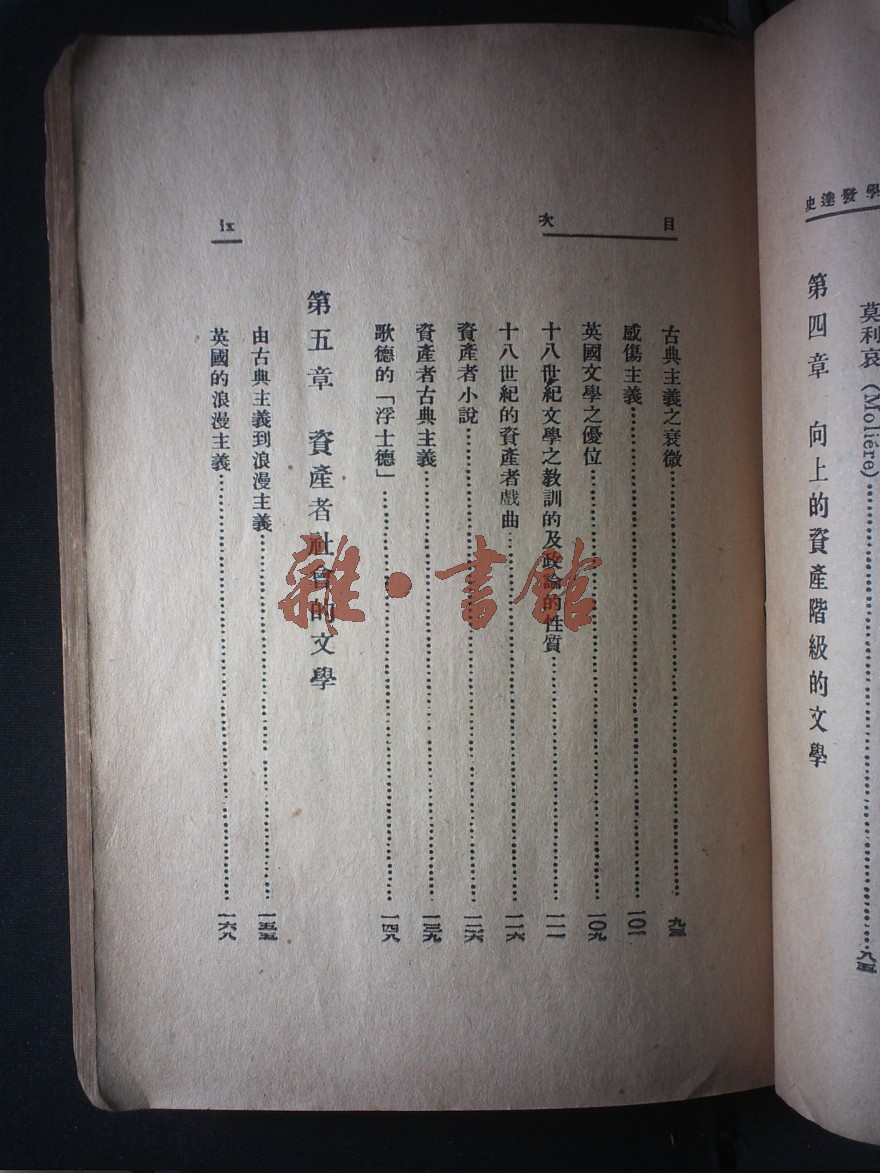 學發達史
莫利哀 (Molière)……八五
第四章 向上的資產階級的文學
目次
古典主義之衰微……九三
感傷主義……一〇一
英國文學之優位……一〇九
十八世紀文學之教訓的及政論的性質……一一一
十八世紀的資產者戲曲……一一六
資產者小說……一二六
資產者古典主義……一三九
歌德的「浮士德」……一四八
第五章 資產者社會的文學
由古典主義到浪漫主義……一五五
英國的浪漫主義……一六八
ix
雜·書館